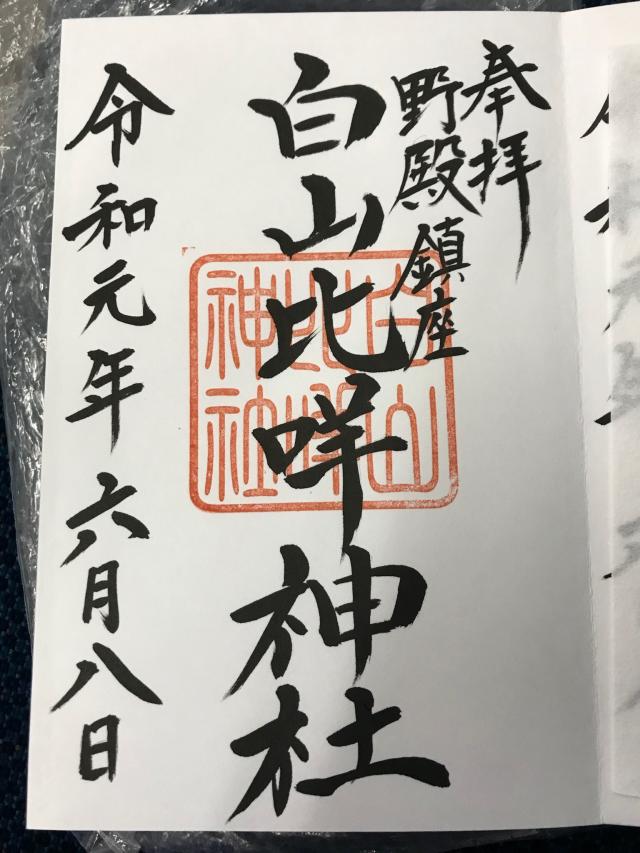 奉拝
野殿鎮座
白山比咩神社
白山比咩神社
令和元年六月八日